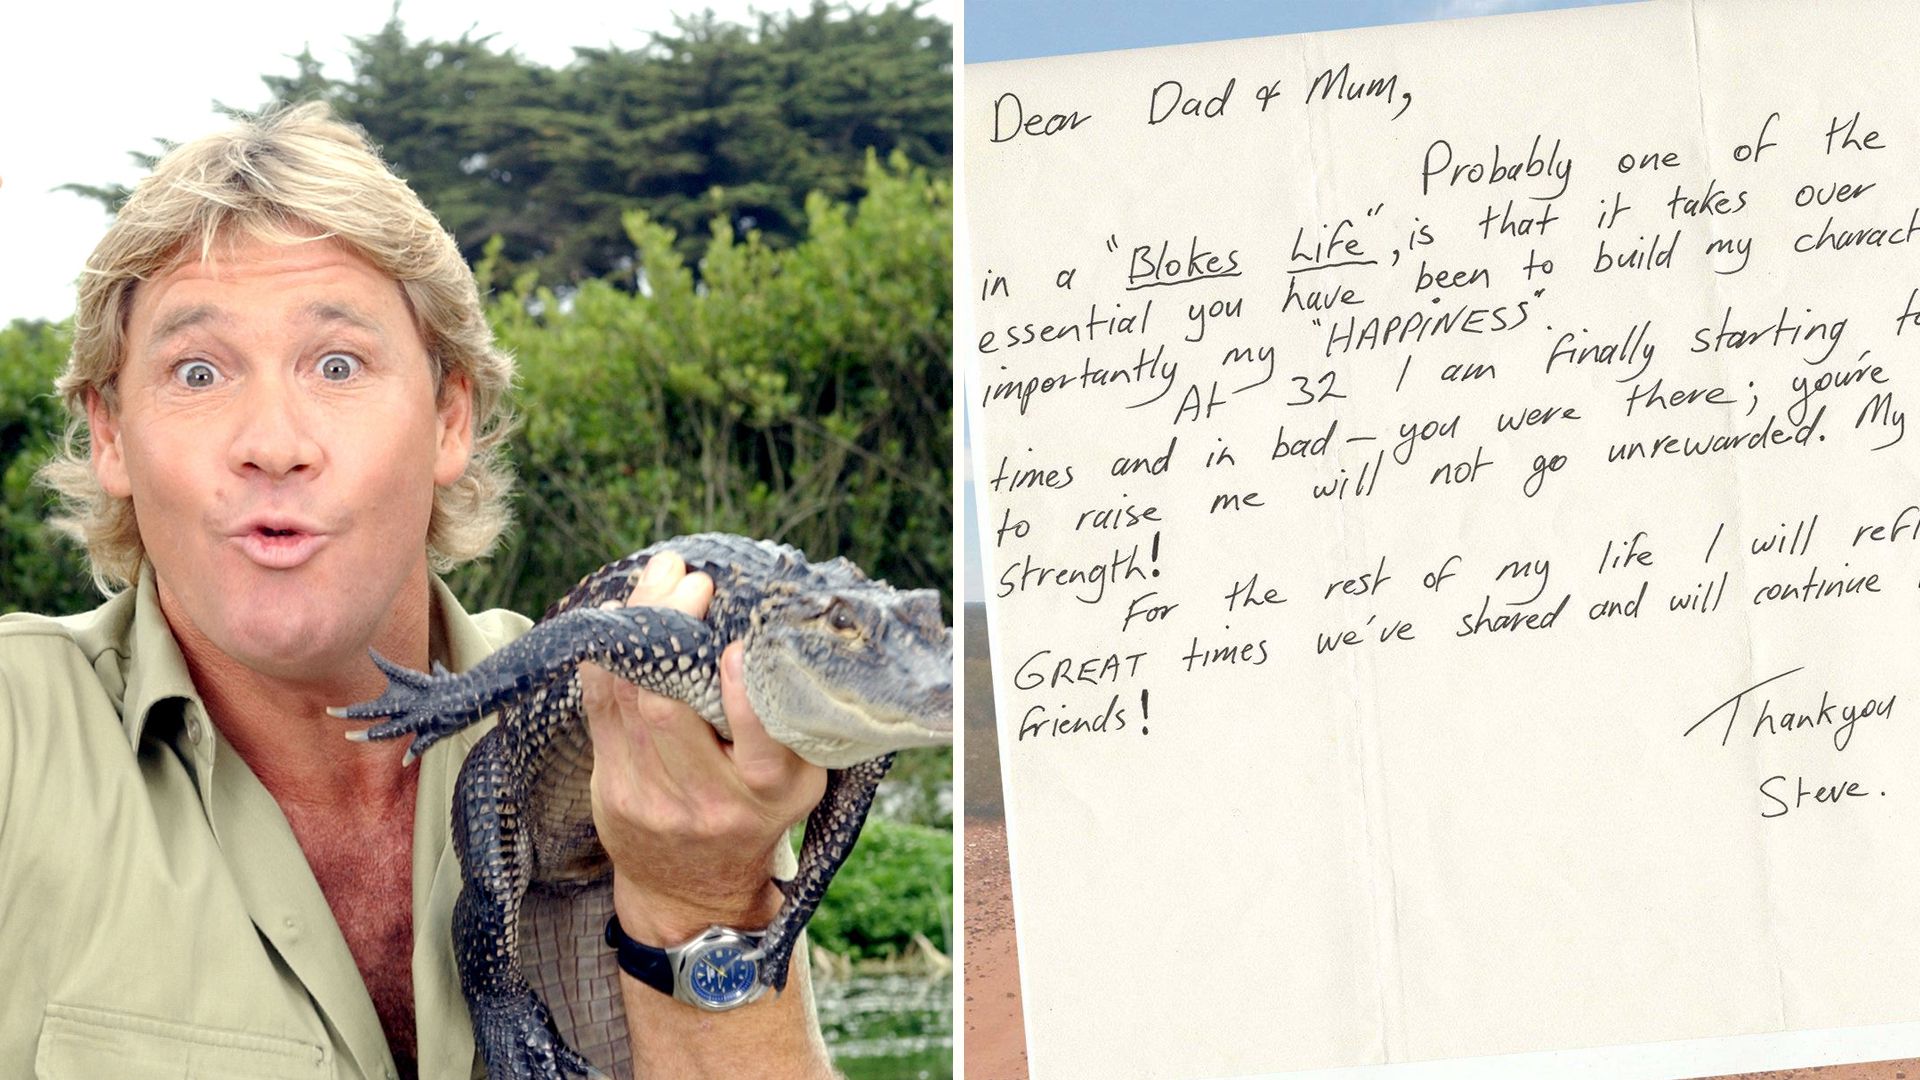 Dear Dad & Mum,
Probably one of the
in a "Blokes Life", is that it takes over
essential you have been to build my charact
importantly my "HAPPINESS".
At 32 I am finally starting
times and in bad – you were there; you're
to raise me will not go unrewarded. My
strength!
For the rest of my life I will refl
GREAT times we've shared and will continue
friends!
Thankyou
Steve.